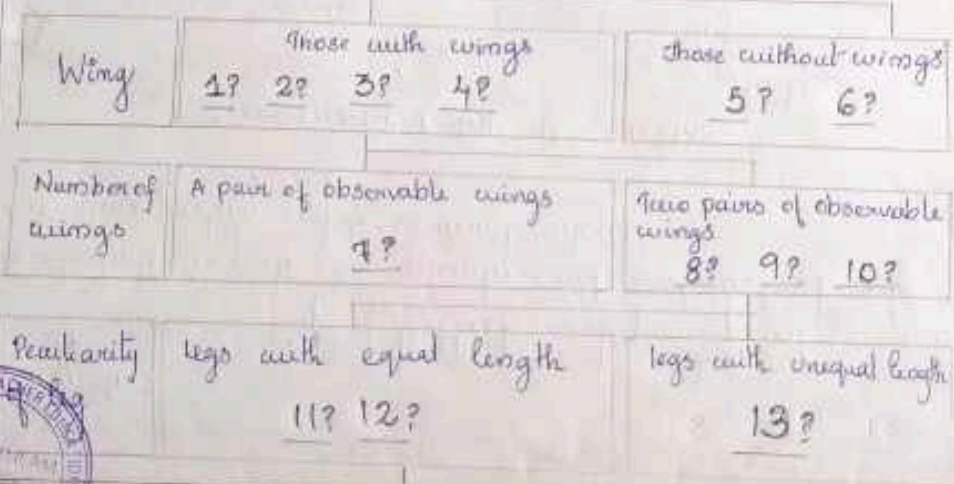 Wing
Those with wings
1? 2? 3? 4?
Those without wings
5? 6?
Number of
wings
A pair of observable wings
7?
Two pairs of observable
wings
8? 9? 10?
Peculiarity
of leg
Legs with equal length
11? 12?
legs with unequal length
13?